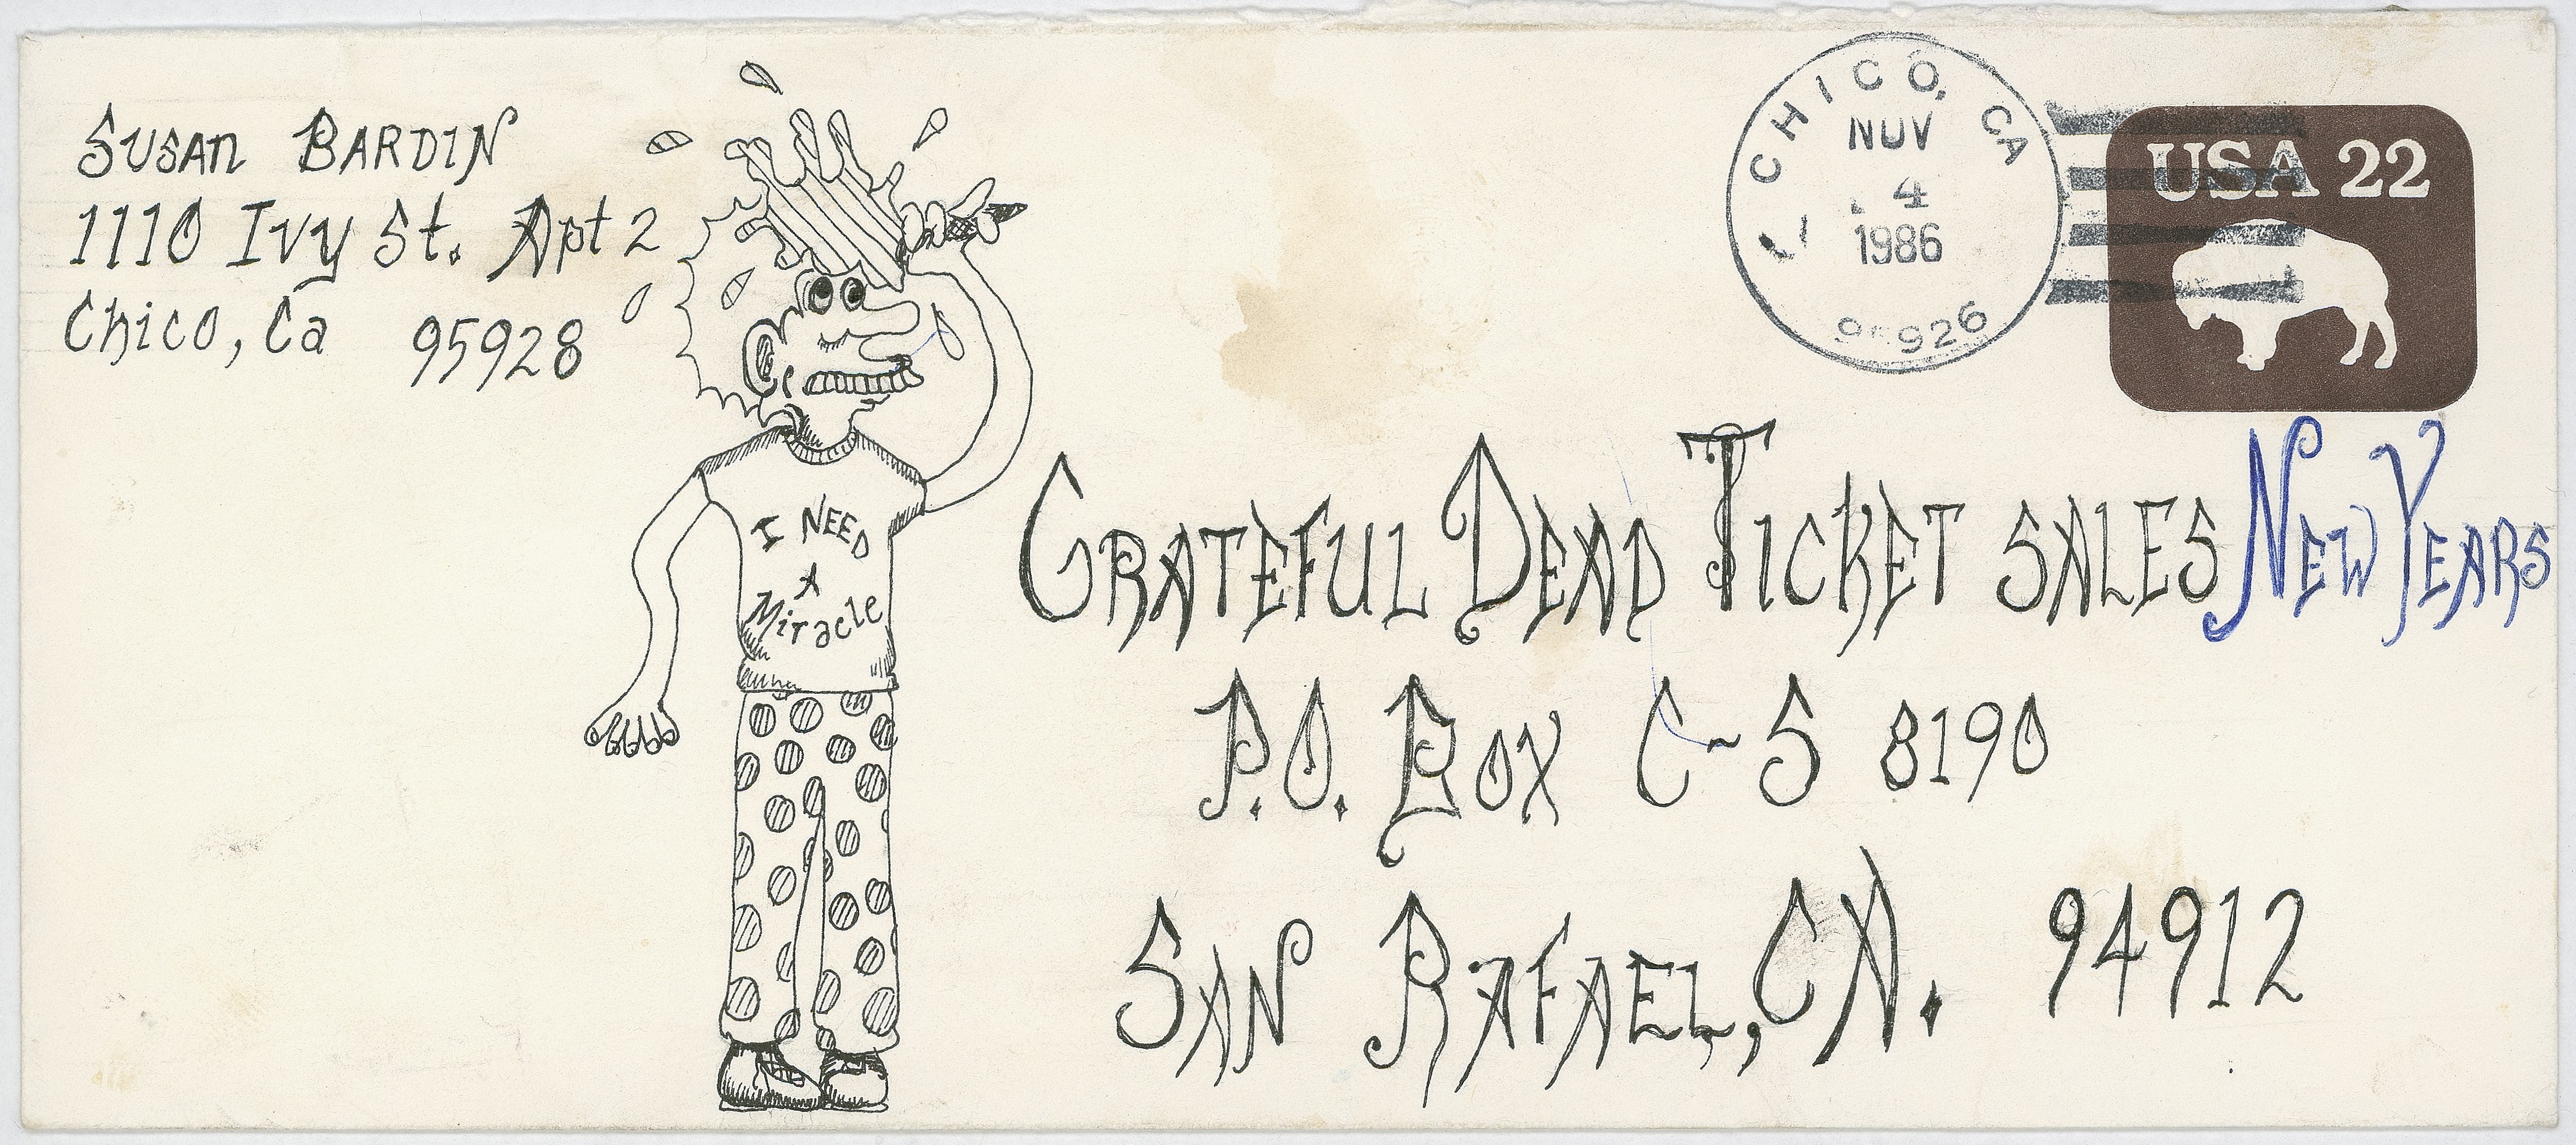 Susan Bardin
1110 Ivy St. Apt 2
Chico, Ca 95928
CHICO, CA
NOV
4
1986
USA 22
I NEED
A
Miracle
Grateful Dead Ticket Sales New Years
P.O. Box C-S 8190
San Rafael, CA. 94912